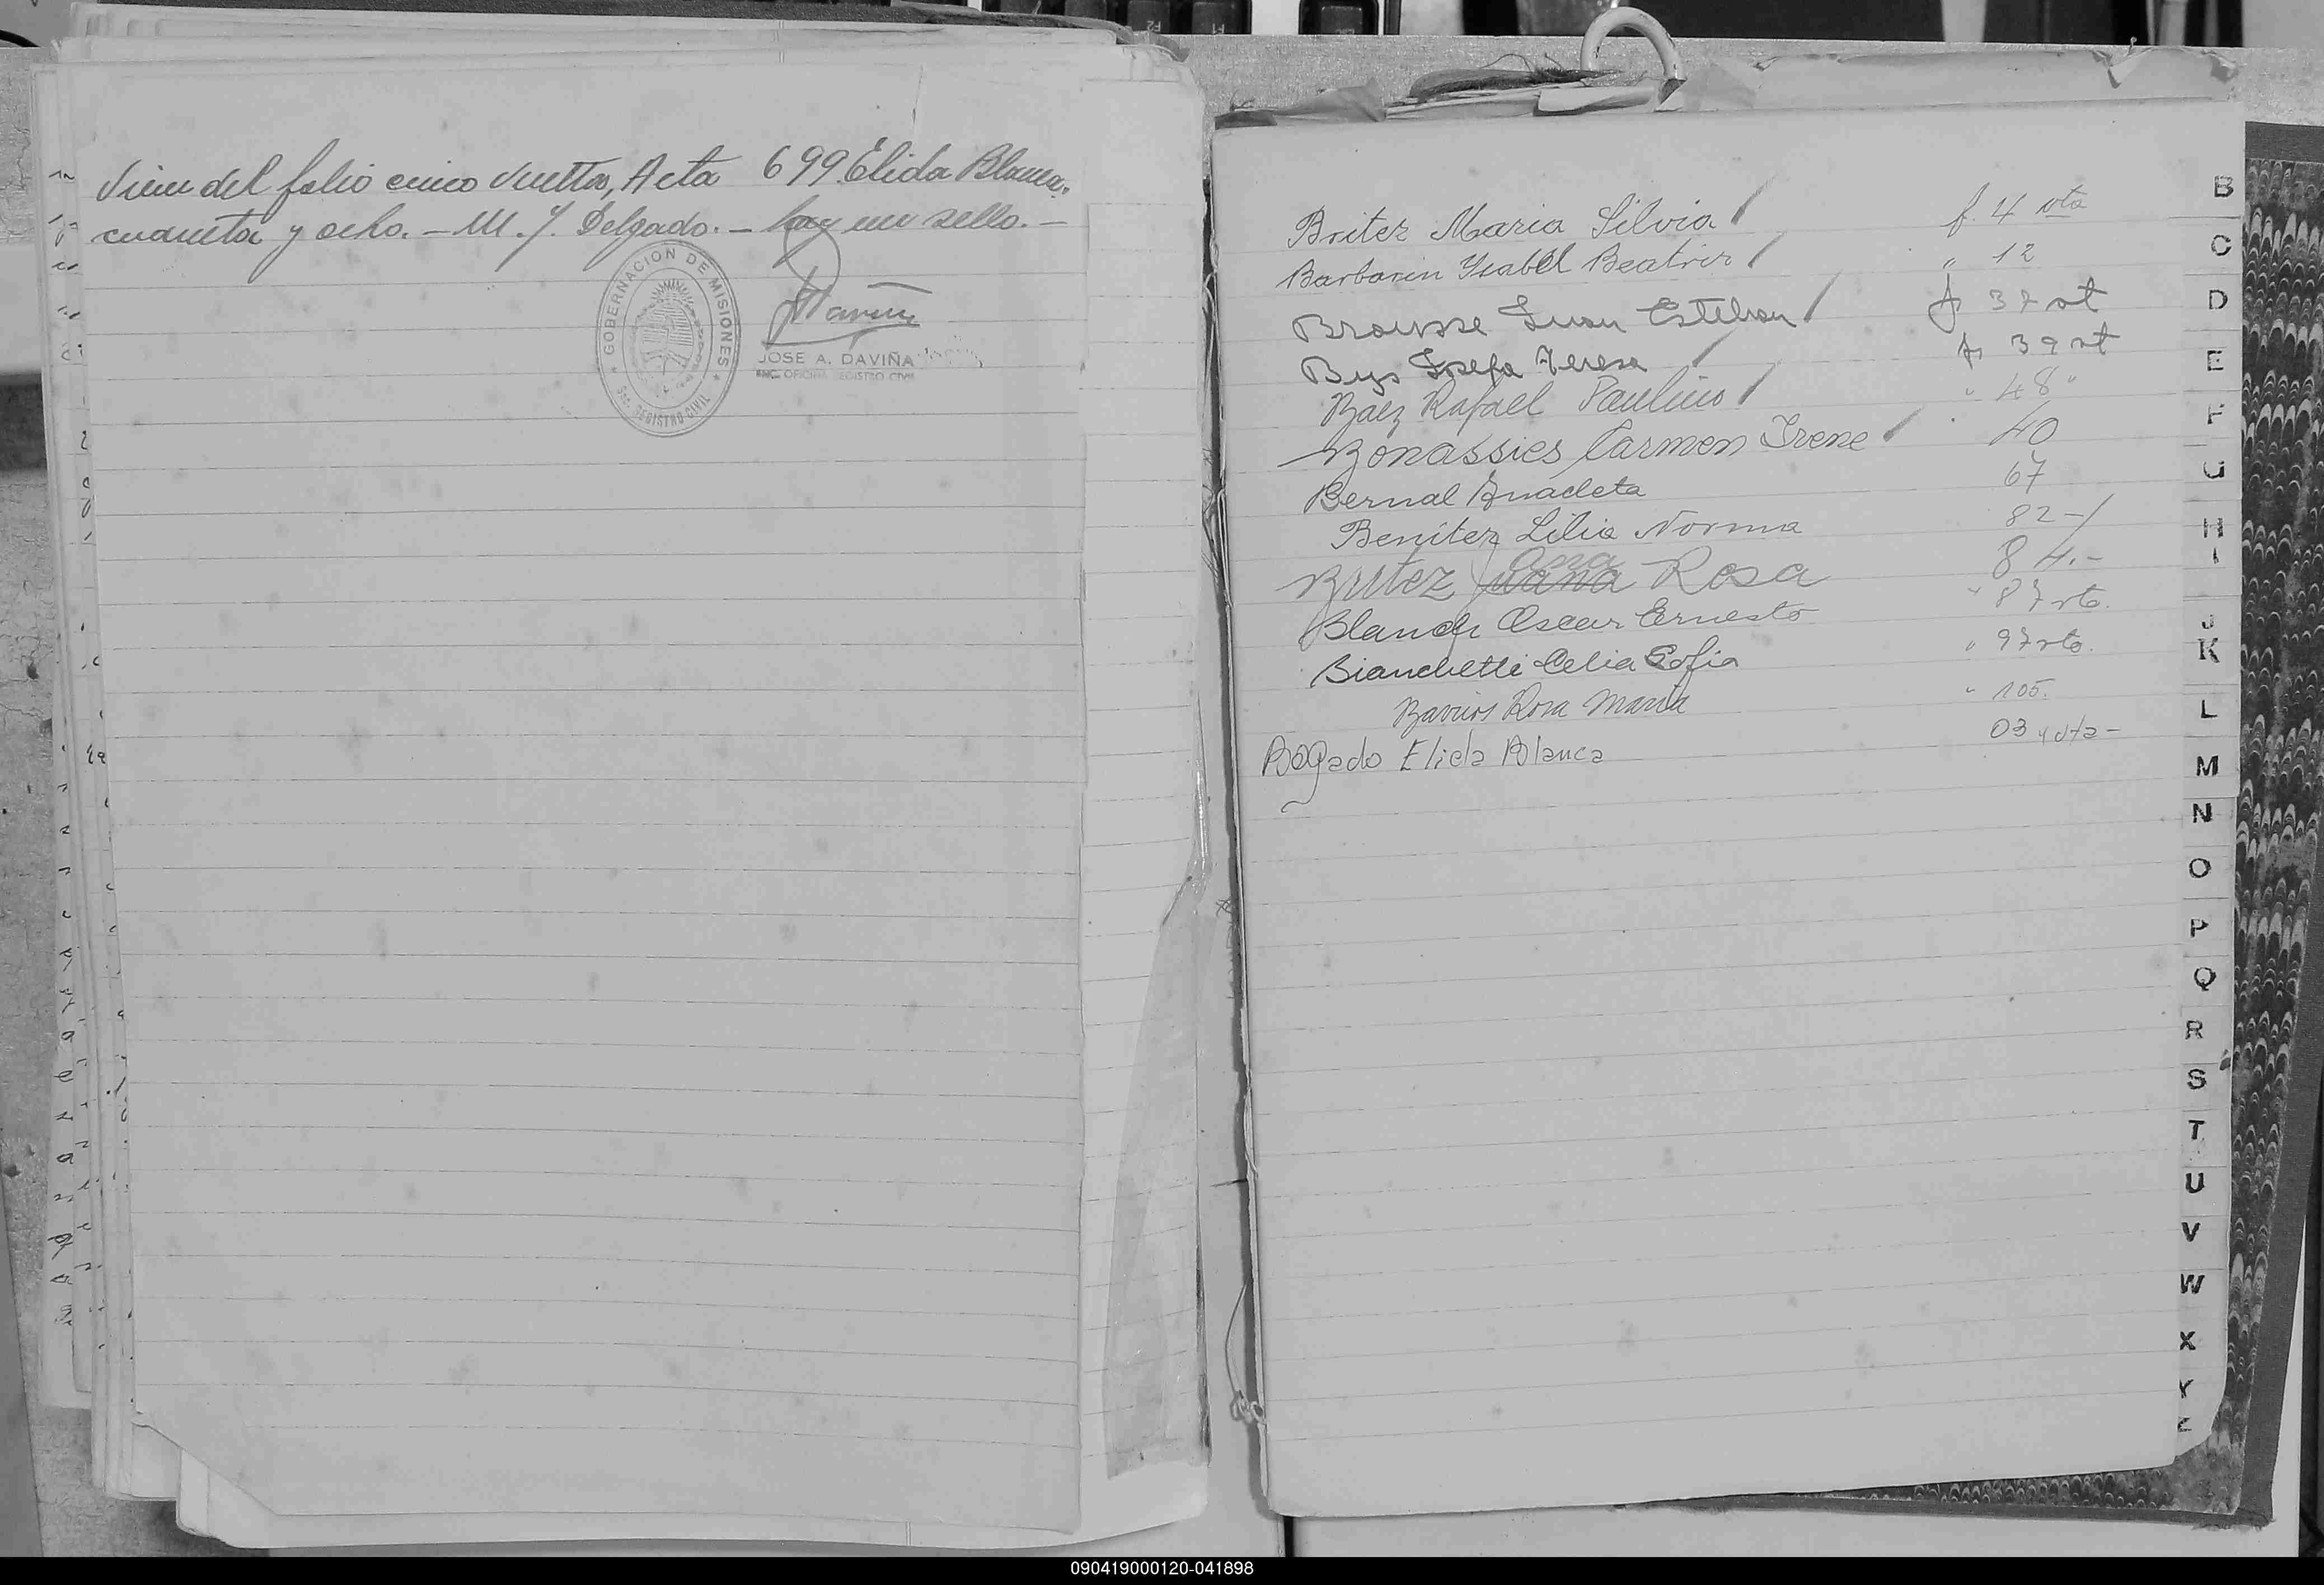 Viene del folio cinco vuelta, Acta 699. Elida Blanca.
cuarenta y ocho. — M. J. Delgado. — hay un sello. —
GOBERNACION DE MISIONES
SEC. REGISTRO CIVIL
JOSE A. DAVIÑA
ENC. OFICINA REGISTRO CIVIL
Britez Maria Silvia f. 4 vta
Barbarin Ysabel Beatriz " 12
Brousse Juan Esteban f. 37 vt
Bys Josefa Teresa f. 39 vt
Baez Rafael Paulino " 48 "
Bonassies Carmen Irene 40
Bernal Anacleta 67
Benítez Lilia Norma 82-/
Britez Juana Ana Rosa 84.-
Blanch Oscar Ernesto " 87 vto.
Bianchetti Celia Sofia " 97 vto.
Barrios Rosa Maria " 105.
Bogado Elida Blanca 03 y vta-
B
C
D
E
F
G
H
I
J
K
L
M
N
O
P
Q
R
S
T
U
V
W
X
Y
Z
090419000120-041898